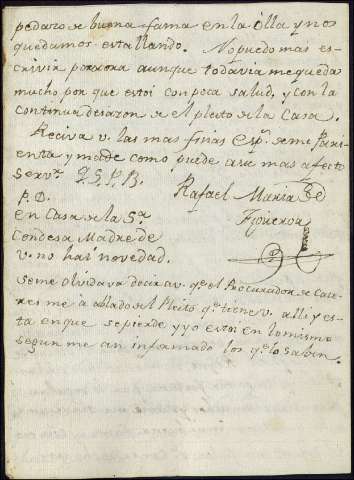 pedazo de buena fama en la olla y nos
quedamos estallando. No puedo mas es-
crivir por aora aunque todavia me queda
mucho por que estoi con poca salud, y con la
continua desazon de el pleito de la Casa.
Reciva v. las mas finas esp.s de mi Parri-
enta y mande como puede a su mas afecto
Serv.r Q.S.P.B.
Rafael Maria de
Figueroa
P.D.
en Casa de la S.ra
Condesa Madre de
v. no hai novedad.
Se me olvidava decir a v. q.e el Procurador de Cace-
res me à ablado del Pleito q.e tiene v. alli y es-
ta en que se pierde y yo estoi en lo mismo
segun me an informado los q.e lo saben.